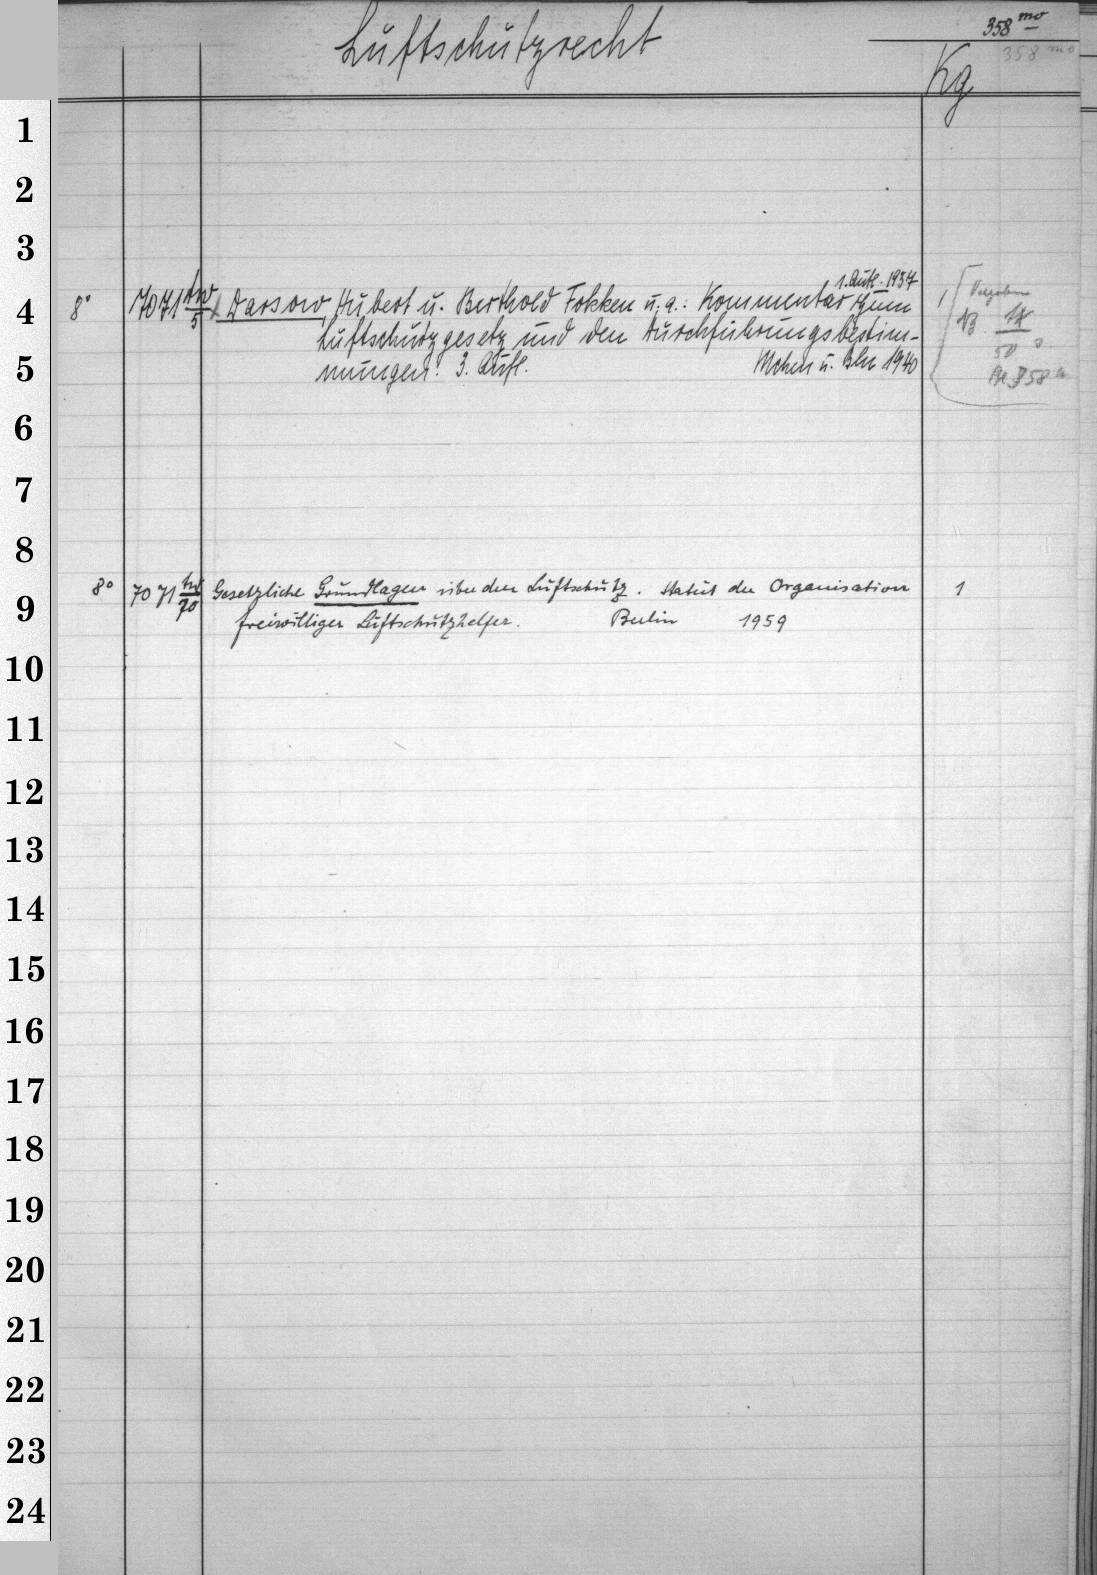 Luftschutzrecht
358 mo
358 mo
Kg
1
2
3
1. Aufl. 1937
4
8° 7071 tw/5 Darsow, Hubert u. Berthold Fokken u. a.: Kommentar zum
Luftschutzgesetz und den Durchführungsbestim-
5
mungen. 3. Aufl. Mchen u. Bln 1940
6
7
8
8° 7071 tw/70 Gesetzliche Grundlagen über den Luftschutz. Statut der Organisation 1
9
freiwilliger Luftschutzhelfer. Berlin 1959
10
11
12
13
14
15
16
17
18
19
20
21
22
23
24